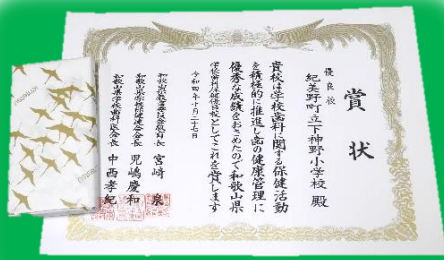 賞状
優良校
紀美野町立下神野小学校 殿
貴校は学校歯科に関する保健活動
を積極的に推進し歯の健康管理に
優秀な成績をおさめたので和歌山県
学校歯科保健優良校としてこれを賞します
令和四年十月二十七日
和歌山県教育委員会教育長 宮﨑 泉
会長 児嶋慶和
和歌山県学校歯科医会会長 中西孝紀